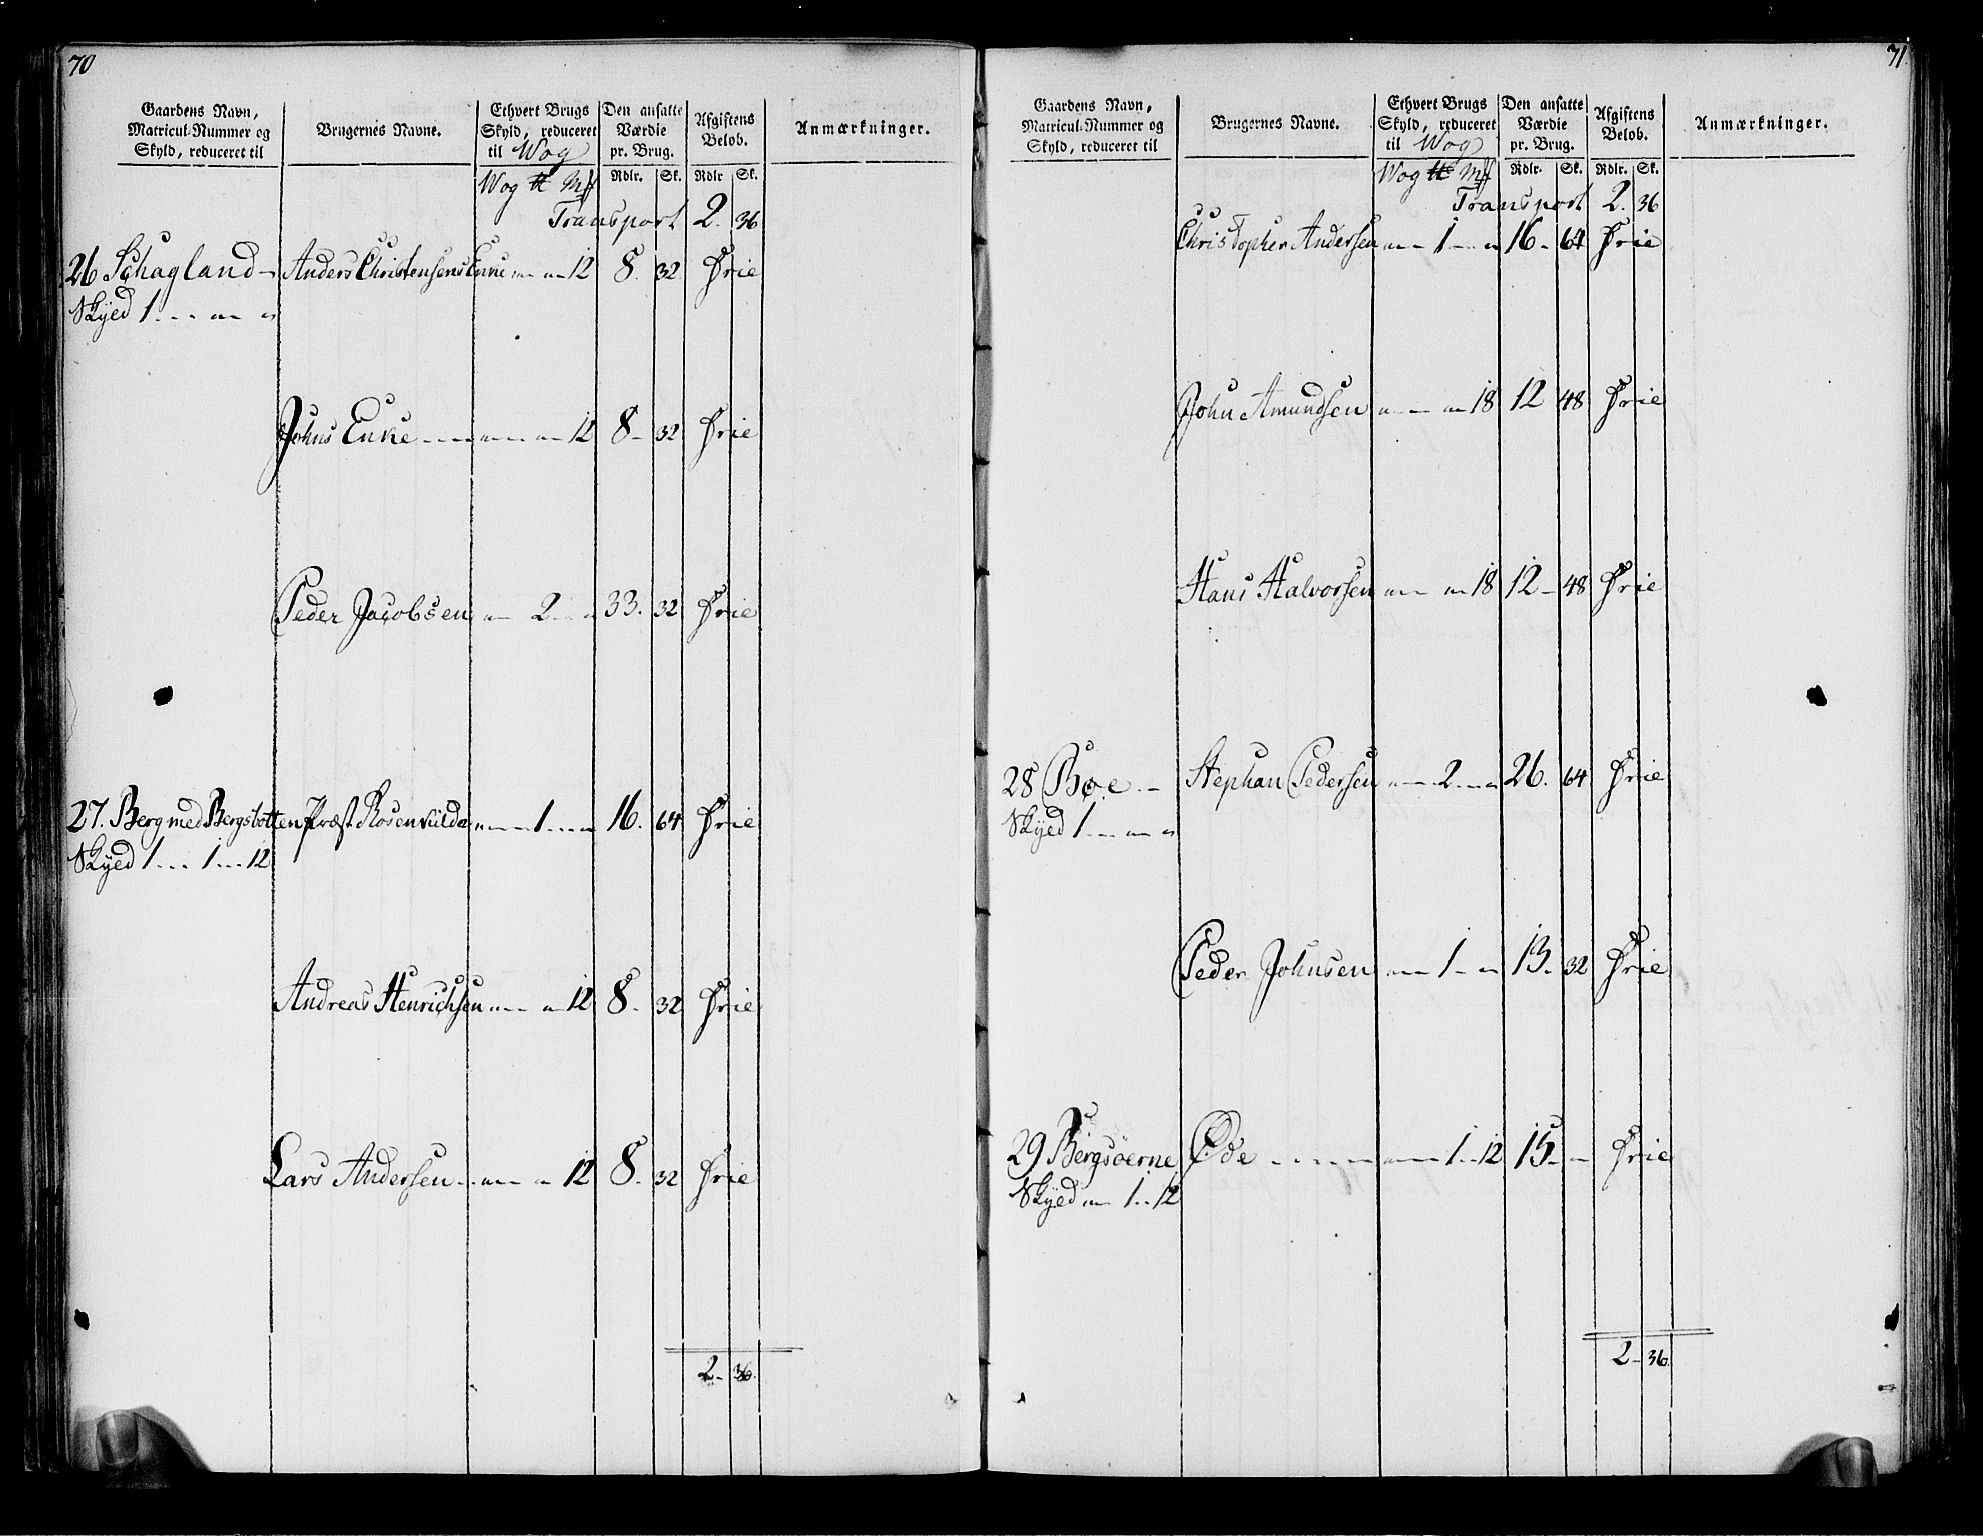 70
Gaardens Navn, Matricul-Nummer og Skyld, reduceret til
Brugernes Navne.
Ethvert Brugs Skyld, reduceret til Wog
Den ansatte Værdie pr. Brug.
Afgiftens Beløb.
Anmærkninger.
Wog Rdlr. Sk. Rdlr Sk.
Transport 2. 36
26 Schagland Anders Christensens Enke 12 8. 32 Frie
Skyed 1
Johns Enke 12 8 32 Frie
Peder Jacobsen 2 33. 32 Frie
27. Berg med Bergsbotten Præst Rosenkilde 1 16. 64 Frie
Skyed 1 1 12
Andreas Henrichsen 12 8. 32 Frie
Lars Andersen 12 8. 32 Frie
2 36.
71
Gaardens Navn, Matricul-Nummer og Skyld, reduceret til
Brugernes Navne.
Ethvert Brugs Skyld, reduceret til Wog
Den ansatte Værdie pr. Brug.
Afgiftens Beløb.
Anmærkninger.
Wog Rdlr. Sk. Rdlr. Sk.
Transport 2. 36
Christopher Andersen 1 16 64 Frie
John Amundsen 18 12 48 Frie
Hans Halvorsen 18 12 48 Frie
28 Bøe Stephan Pedersen 2 26. 64 Frie
Skyed 1
Peder Johnsen 1 13. 32 Frie
29 Bergsøerne Øde 1 12 15 Frie
Skyed 1 12
2 36.